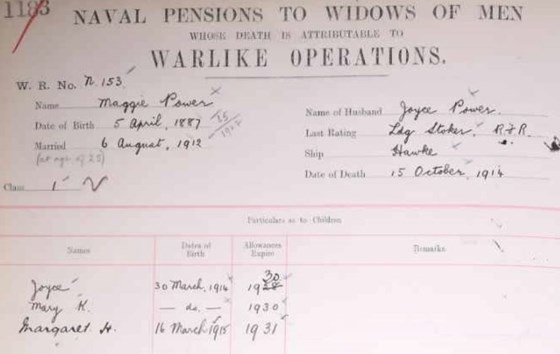 1183
NAVAL PENSIONS TO WIDOWS OF MEN
WHOSE DEATH IS ATTRIBUTABLE TO
WARLIKE OPERATIONS.
W. R. No. N. 153
Name Maggie Power
Date of Birth 5 April, 1887
Married 6 August, 1912
(at age of 25)
Class 1
Name of Husband Joyce Power
Last Rating Ldg Stoker, R.F.R.
Ship Hawke
Date of Death 15 October, 1914
Particulars as to Children
Names Dates of Birth Allowances Expire Remarks
Joyce 30 March, 1914 1930
Mary K. — do. — 1930
Margaret H. 16 March 1915 1931